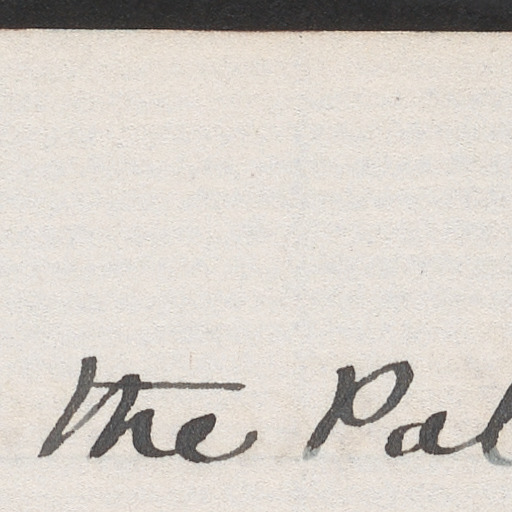 the Pal